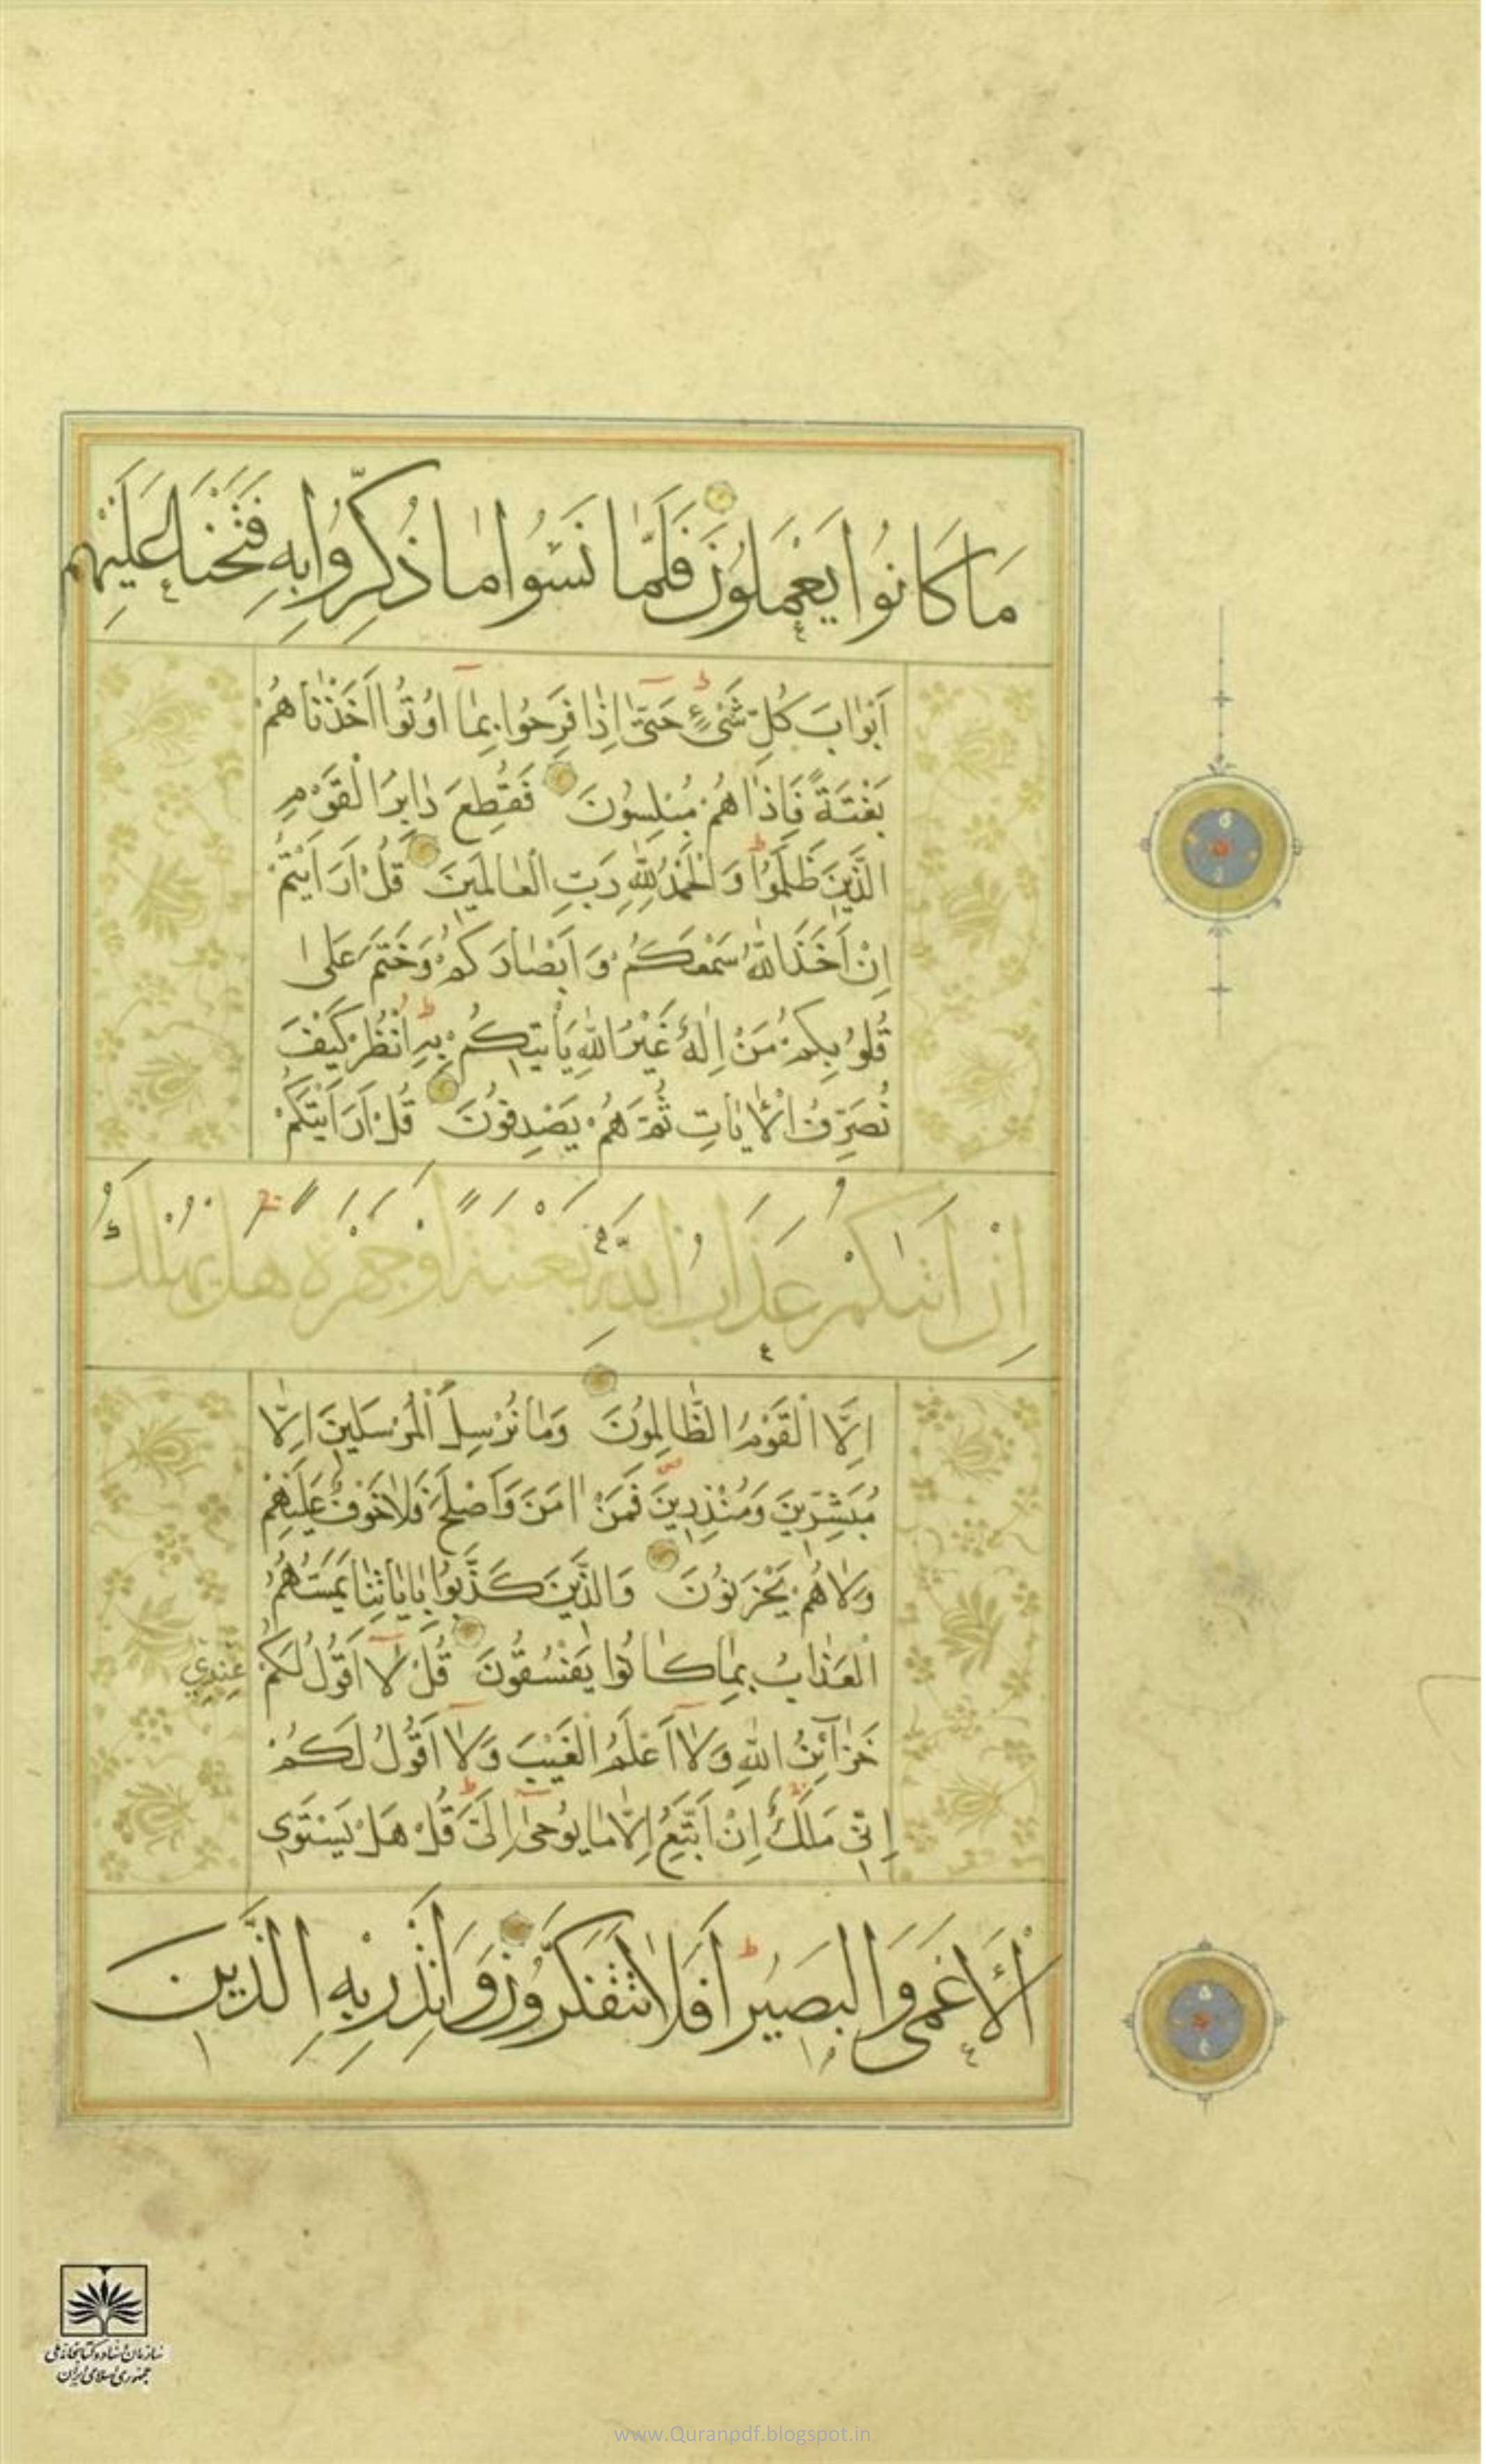 مَا كَانُوا يَعْمَلُونَ فَلَمَّا نَسُوا مَا ذُكِّرُوا بِهِ فَتَحْنَا عَلَيْهِمْ
اَبْوٰابَ كُلِّ شَىْءٍ حَتّٰى اِذٰا فَرِحُوا بِمٰا اُوتُوا اَخَذْنٰاهُمْ
بَغْتَةً فَاِذٰا هُمْ مُبْلِسُونَ فَقُطِعَ دٰابِرُ الْقَوْمِ
الَّذِينَ ظَلَمُوا وَ الْحَمْدُ لِلّٰهِ رَبِّ الْعٰالَمِينَ قُلْ اَرَاَيْتُمْ
اِنْ اَخَذَ اللّٰهُ سَمْعَكُمْ وَ اَبْصٰارَكُمْ وَخَتَمَ عَلىٰ
قُلُوبِكُمْ مَنْ اِلٰهٌ غَيْرُ اللّٰهِ يَأْتِيكُمْ بِهِ اُنْظُرْ كَيْفَ
نُصَرِّفُ الْاٰيٰاتِ ثُمَّ هُمْ يَصْدِفُونَ قُلْ اَرَاَيْتَكُمْ
اِنْ اَتٰيكُمْ عَذَابُ اللّٰهِ بَغْتَةً اَوْ جَهْرَةً هَلْ يُهْلَكُ
اِلَّا الْقَوْمُ الظّٰالِمُونَ وَمٰا نُرْسِلُ الْمُرْسَلِينَ اِلّٰا
مُبَشِّرِينَ وَمُنْذِرِينَ فَمَنْ اٰمَنَ وَاَصْلَحَ فَلٰا خَوْفٌ عَلَيْهِمْ
وَلٰا هُمْ يَحْزَنُونَ وَالَّذِينَ كَذَّبُوا بِاٰيٰاتِنٰا يَمَسُّهُمُ
الْعَذٰابُ بِمٰا كٰانُوا يَفْسُقُونَ قُلْ لٰا اَقُولُ لَكُمْ عِنْدِي
خَزٰآئِنُ اللّٰهِ وَلٰا اَعْلَمُ الْغَيْبَ وَلٰا اَقُولُ لَكُمْ
اِنِّي مَلَكٌ اِنْ اَتَّبِعُ اِلّٰا مٰا يُوحىٰ اِلَيَّ قُلْ هَلْ يَسْتَوِي
الْاَعْمَى وَالْبَصِيرُ اَفَلَا تَتَفَكَّرُونَ وَاَنْذِرْ بِهِ الَّذِينَ
سازمان اسناد و کتابخانه ملی
جمهوری اسلامی ایران
www.Quranpdf.blogspot.in